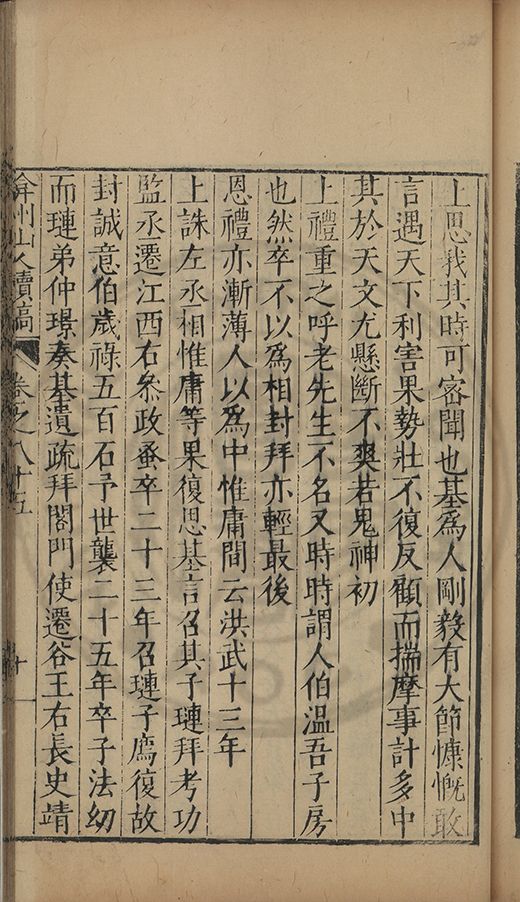 上思我其時可密聞也基爲人剛毅有大節慷慨敢
言遇天下利害果勢壯不復反顧而揣摩事計多中
其於天文尤懸斷不爽若鬼神初
上禮重之呼老先生不名又時時謂人伯溫吾子房
也然卒不以爲相封拜亦輕最後
恩禮亦漸薄人以爲中惟庸間云洪武十三年
上誅左丞相惟庸等果復思基言召其子璉拜考功
監丞遷江西右叅政蚤卒二十三年召璉子廌復故
封誠意伯歲祿五百石予世襲二十五年卒子法幼
而璉弟仲璟奏基遺疏拜閤門使遷谷王右長史靖
弇州山人續稿 卷之八十五
十